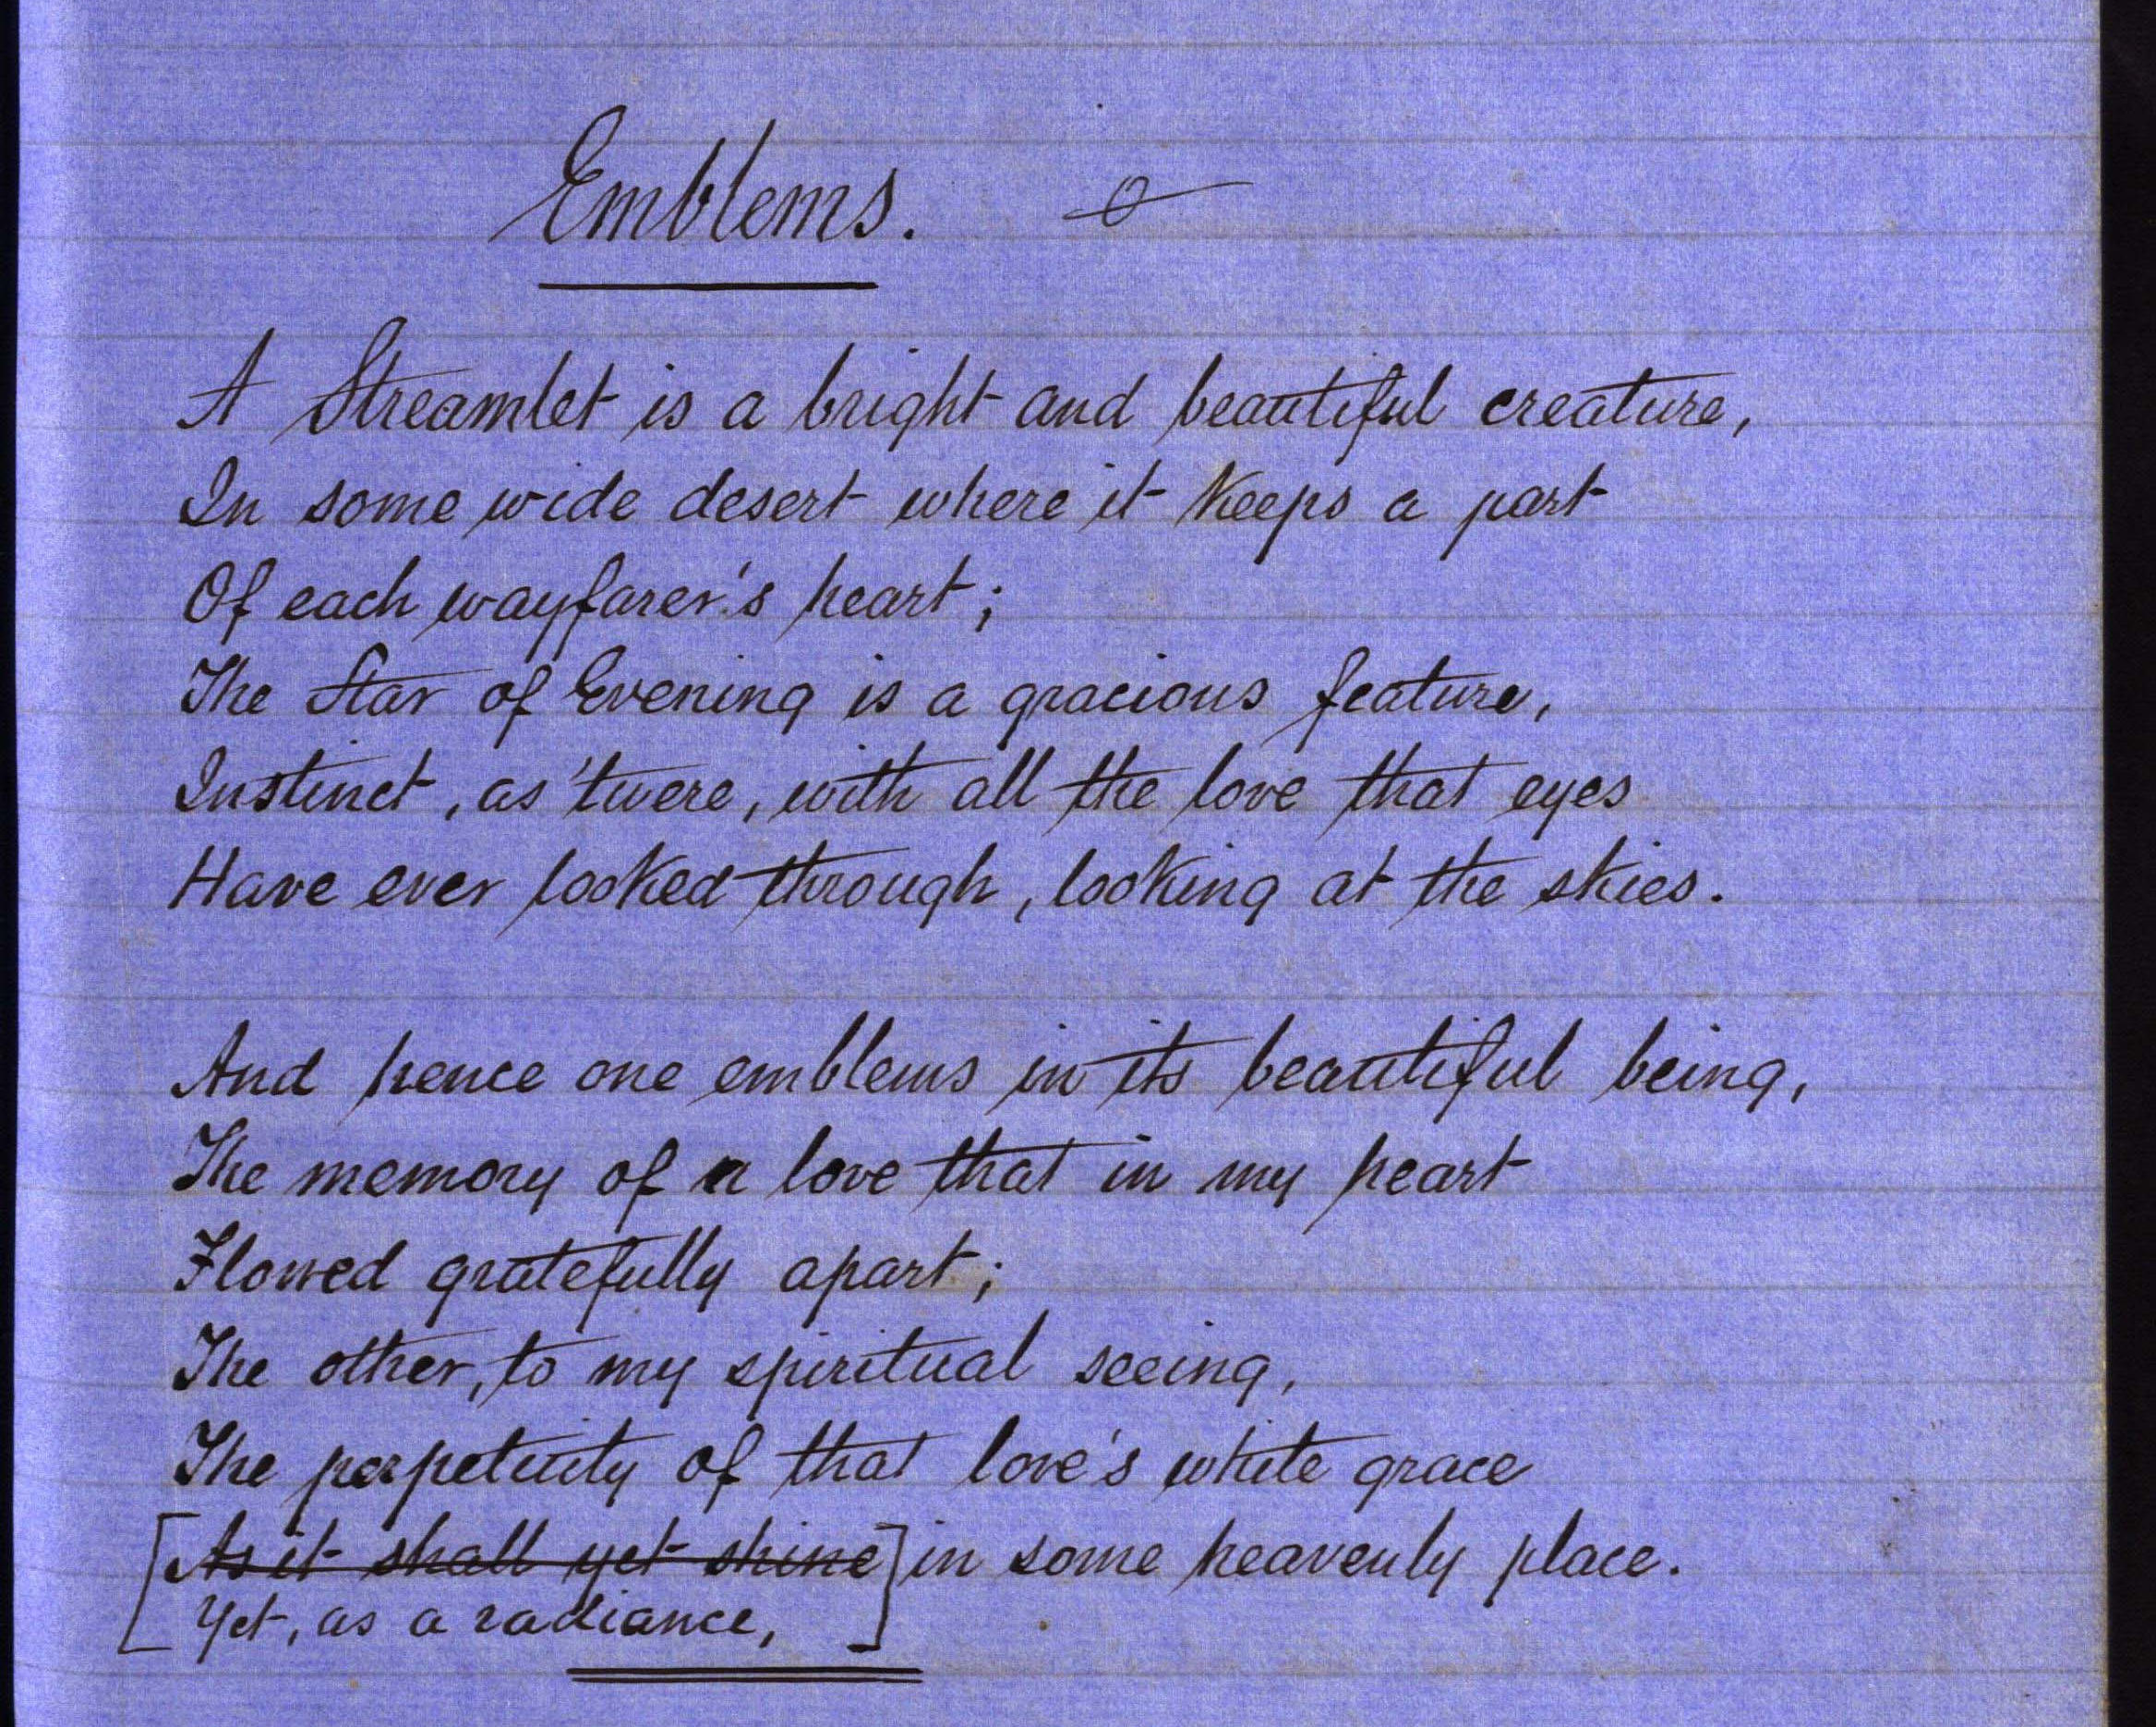 Emblems.
A Streamlet is a bright and beautiful creature,
In some wide desert where it keeps a part
Of each wayfarer's heart;
The Star of Evening is a gracious feature,
Instinct, as 'twere, with all the love that eyes
Have ever looked through, looking at the skies.
And hence one emblems in its beautiful being,
The memory of a love that in my heart
Flowed gratefully apart;
The other, to my spiritual seeing,
The perpetuity of that love's white grace
[As it shall yet shine] in some heavenly place.
Yet, as a radiance,